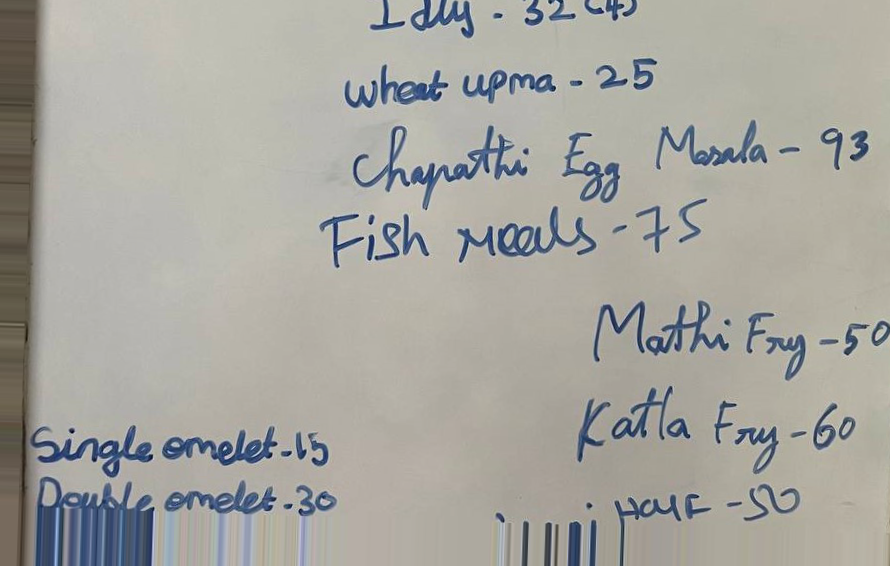 Idly - 32 (4)
Wheat upma - 25
Chapathi Egg Masala - 93
Fish Meals - 75
Mathi Fry - 50
Katla Fry - 60
Single omelet - 15
Double omelet - 30
HaLF - 50